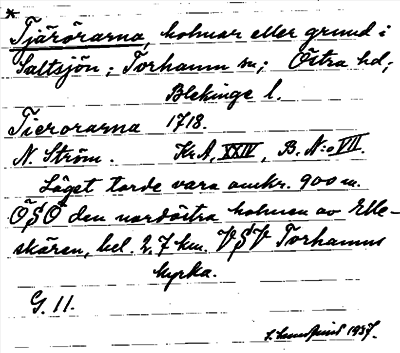 *
Tjärörarna, holmar eller grund i
Saltsjön; Torhamn sn; Östra hd;
Blekinge l.
Tierorarna 1718.
N. Ström. Kr A, XXIV, B. N:o VII.
Läget torde vara omkr. 900 m.
ÖSÖ den nordöstra holmen av Elle-
skären, bel. 2,7 km. VSV Torhamns
kyrka.
G. 11.
1937.